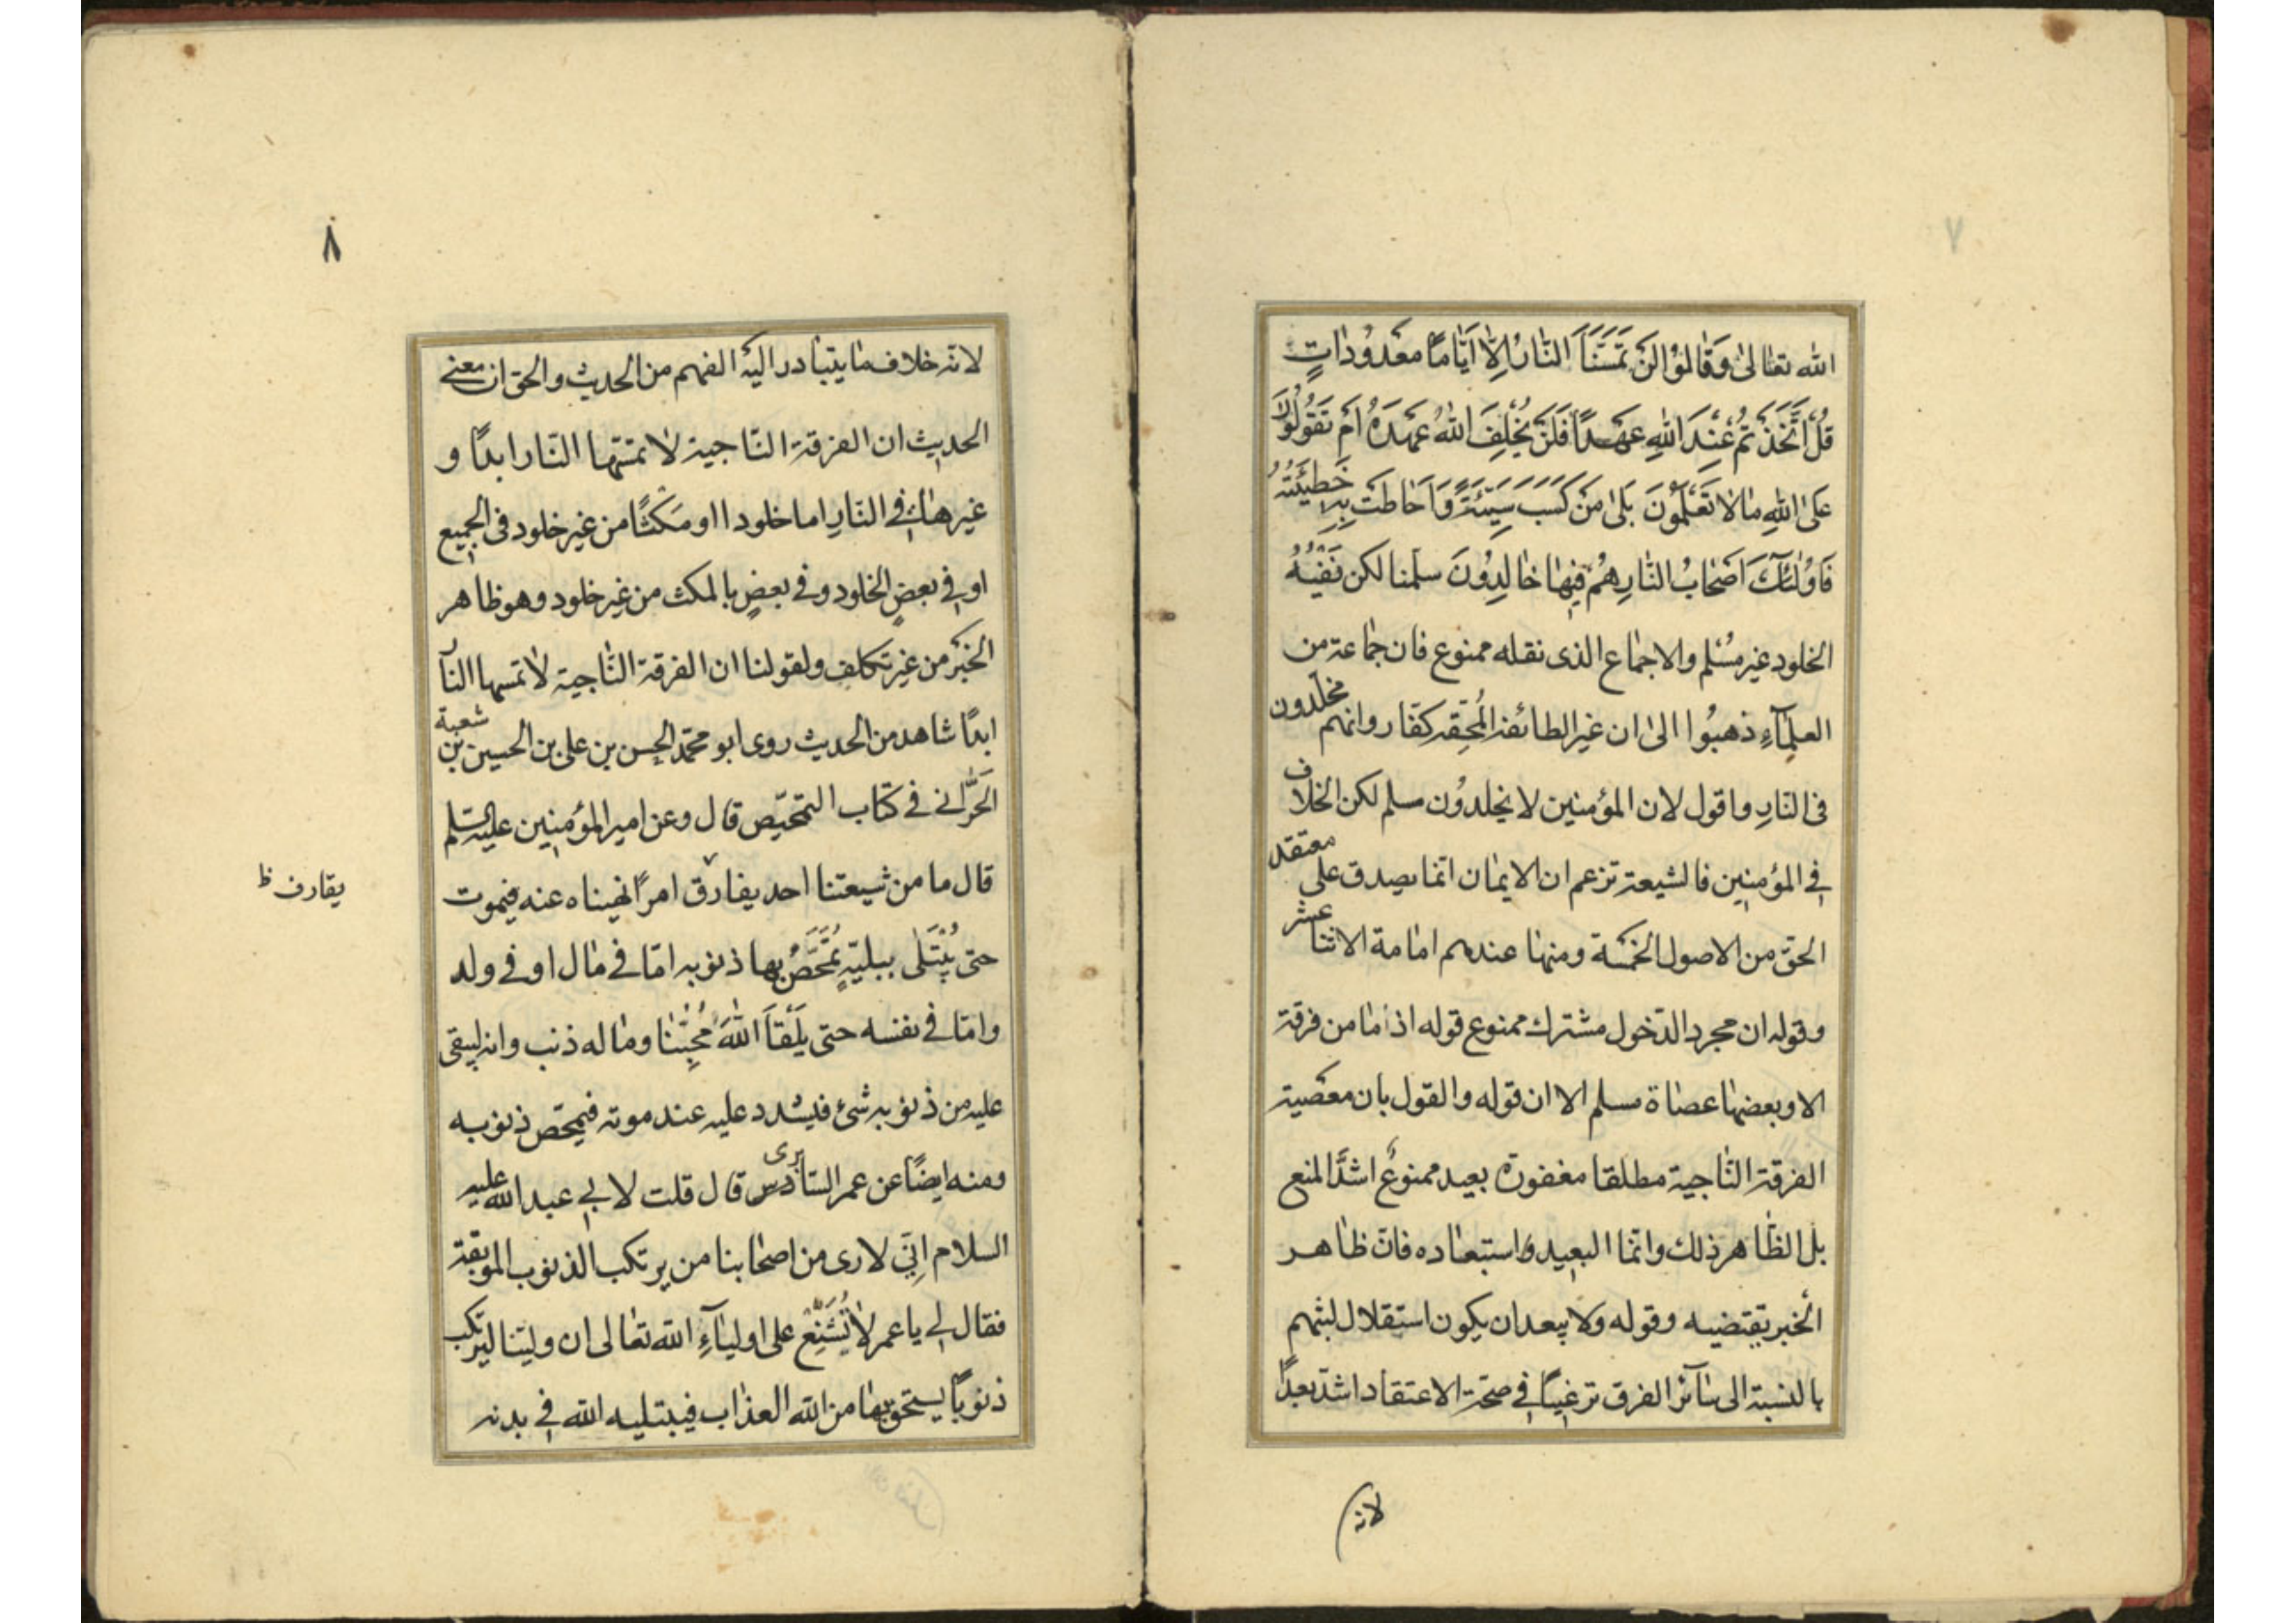 ٧
الله تعالى وَقَالُوْا لَنْ تَمَسَّنَا النَّارُ اِلَّا اَيَّامًا مَعْدُودَاتٍ
قُلْ اَتَّخَذْتُمْ عِنْدَ اللهِ عَهْدًا فَلَنْ يُخْلِفَ اللهُ عَهْدَهُ اَمْ تَقُولُونَ
عَلَى اللهِ مَا لَا تَعْلَمُونَ بَلٰى مَنْ كَسَبَ سَيِّئَةً وَاَحَاطَتْ بِهِ خَطِيئَتُهُ
فَاُولٰئِكَ اَصْحَابُ النَّارِ هُمْ فِيْهَا خَالِدُوْنَ سلّمنا لكن نَفْيُهُ
الخلود غير مُسَلم والاجماع الذى نقله ممنوع فان جماعة من
العلمآءِ ذهبُوا الىٰ ان غير الطائفة المُحِقّه كفّار وانهم مخلّدون
فى النارِ واقول لان المؤمنين لا يخلدوُن مسلم لكن الخلاف
فى المؤمنين فالشيعة تزعم ان الايمان انما يصدق على معتقد
الحقّ من الاصول الخمسَة ومنها عندهم امامة الاثنا عشر
وقوله ان مجرد الدّخول مشترك ممنوع قوله اذ ما من فرقة
الا وبعضها عصاة مسلم الا ان قوله والقول بان معصية
الفرقة النّاجية مطلقا مغفورة بعيد ممنوعٌ اشدَّ المنع
بل الظّاهر ذلك وانّما البعيد واستبعاده فانّ ظاهر
الخبر يقتضيه وقوله ولا يبعد ان يكون استقلال لبثهم
بالنسبة الى سآئر الفرق ترغيبًا فى صحّة الاعتقاد اشدّ بعدًا
لانه
٨
لانّه خلاف ما يتبادر اليه الفهم من الحديث والحق ان معنى
الحديث ان الفرقة النّاجية لا تمسّها النّار ابدًا و
غيرها فى النّارِ اما خلودا او مَكْثًا من غير خلود فى الجميع
او فى بعضٍ الخلود وفى بعضٍ بالمكث من غير خلود وهو ظاهر
الخبَر من غير تكلف ولقولنا ان الفرقة النّاجية لا تمسها النآ
ابدًا شاهد من الحديث روى ابو محمّد الحسن بن على بن الحسين بن شعبة
الحَرَّانى فى كتاب التمحّيص قال وعن امير المؤمنين عليه السلم
قال ما من شيعتنا احد يفارق امرًا نهيناه عنه فيموت
يقارف ظ
حتى يُبْتَلٰى ببليّةٍ تُمَحَّصُ بها ذنوبه امّا فى مال او فى ولد
وامّا فى نفسه حتى يَلْقَا اللهَ مُحِبُّنَا وماله ذنب وانه ليبقى
عليه من ذنوبه شئ فيشدد عليه عند موته فيمحّص ذنوبه
ومنه ايضًا عن عمر السّابرى قال قلت لابى عبد الله عليه
السلام اِنّى لارى من اصحابنا من يرتكب الذنوب الموبقة
فقال لى يا عمر لا تُشَنِّعْ على اوليآءِ الله تعالى ان وليّنا ليرتكب
ذنوبًا يستحق بها من الله العذاب فيبتليه الله فى بدنه